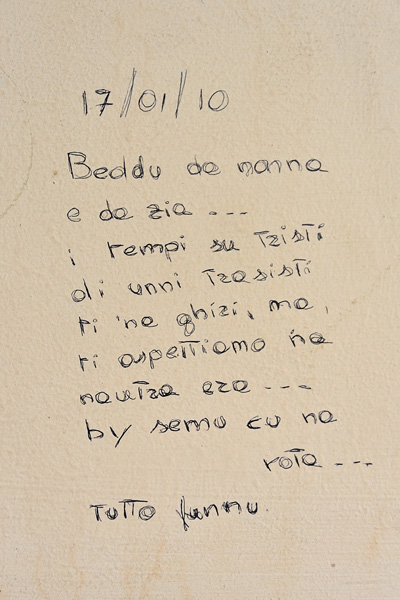 17/01/10
Beddu da nanna
e da zia ---
i tempi su tristi
di unni trasisti
ti 'na ghiri, ma,
ti aspettiamo na
nautra era ---
by semu cu na
rota ---
Tutto fannu.